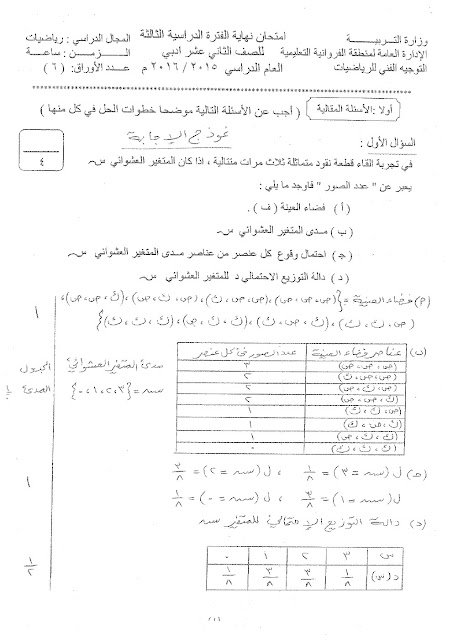 وزارة التربيـــة
امتحان نهاية الفترة الدراسية الثالثة
المجال الدراسي : رياضيات
الإدارة العامة لمنطقة الفروانية التعليمية
للصف الثاني عشر أدبي
الـــزمـــن : ساعة
التوجيه الفني للرياضيات
العام الدراسي ٢٠١٥ / ٢٠١٦ م
عدد الأوراق: ( ٦ )
أولا :الأسئلة المقالية
( أجب عن الأسئلة التالية موضحا خطوات الحل في كل منها )
السؤال الأول :
نموذج الإجابة
٤
في تجربة القاء قطعة نقود متماثلة ثلاث مرات متتالية ، اذا كان المتغير العشوائي س
يعبر عن " عدد الصور " فأوجد ما يلي :
( أ ) فضاء العينة ( ف ) .
( ب ) مدى المتغير العشوائي س
( ج ) احتمال وقوع كل عنصر من عناصر مدى المتغير العشوائي س
( د ) دالة التوزيع الاحتمالي د للمتغير العشوائي س
(م) فضاء العينة = {(ص،ص،ص)، (ص،ص،ك)، (ص،ك،ص)، (ك،ص،ص)،
(ص،ك،ك)، (ك،ص،ك)، (ك،ك،ص)، (ك،ك،ك)}
١
(ب)
عناصر فضاء العينة
عدد الصور في كل عنصر
(ص،ص،ص) ٣
(ص،ص،ك) ٢
(ص،ك،ص) ٢
(ك،ص،ص) ٢
(ص،ك،ك) ١
(ك،ص،ك) ١
(ك،ك،ص) ١
(ك،ك،ك) ٠
مدى المتغير العشوائي
س = {٠،١،٢،٣}
الجدول
المدى
(ج) ل (س = ٣) = ١/٨ ، ل (س = ٢) = ٣/٨
ل (س = ١) = ٣/٨ ، ل (س = ٠) = ١/٨
١
(د) دالة التوزيع الإحتمالي للمتغير س
س ٣ ٢ ١ ٠
د (س) ١/٨ ٣/٨ ٣/٨ ١/٨
١/٢